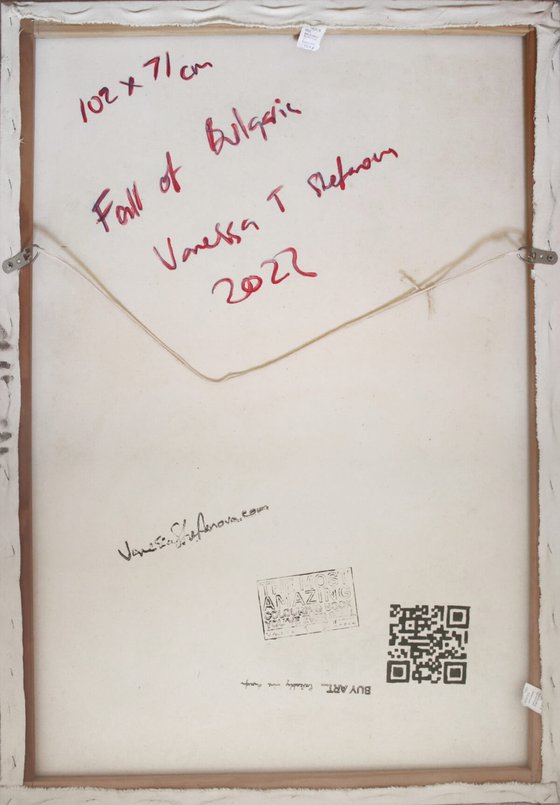 102 x 71 cm
Fall of Bulgaria
Vanessa T Stefanova
2022
VanessaStefanova.com
THE MOST
AMAZING
COLOURING BOOK
BUY ART